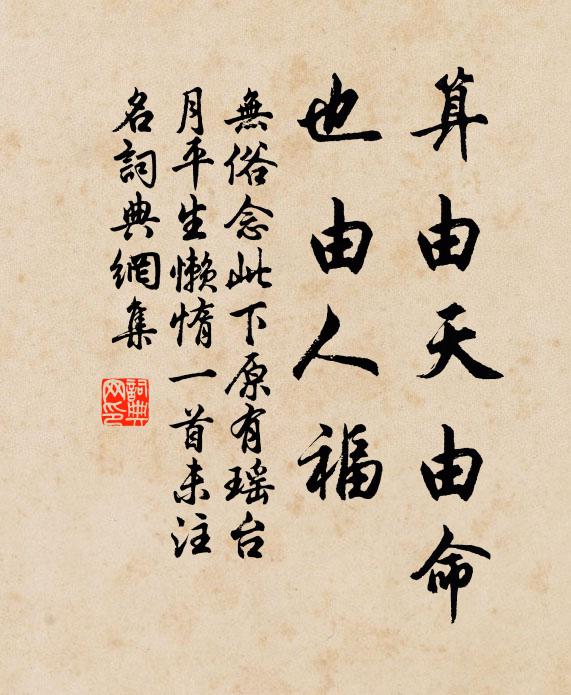 算由天由命
也由人福
無俗念此下原有瑶台
月平生懒惰一首未注
名詞典網集
詞典
网印